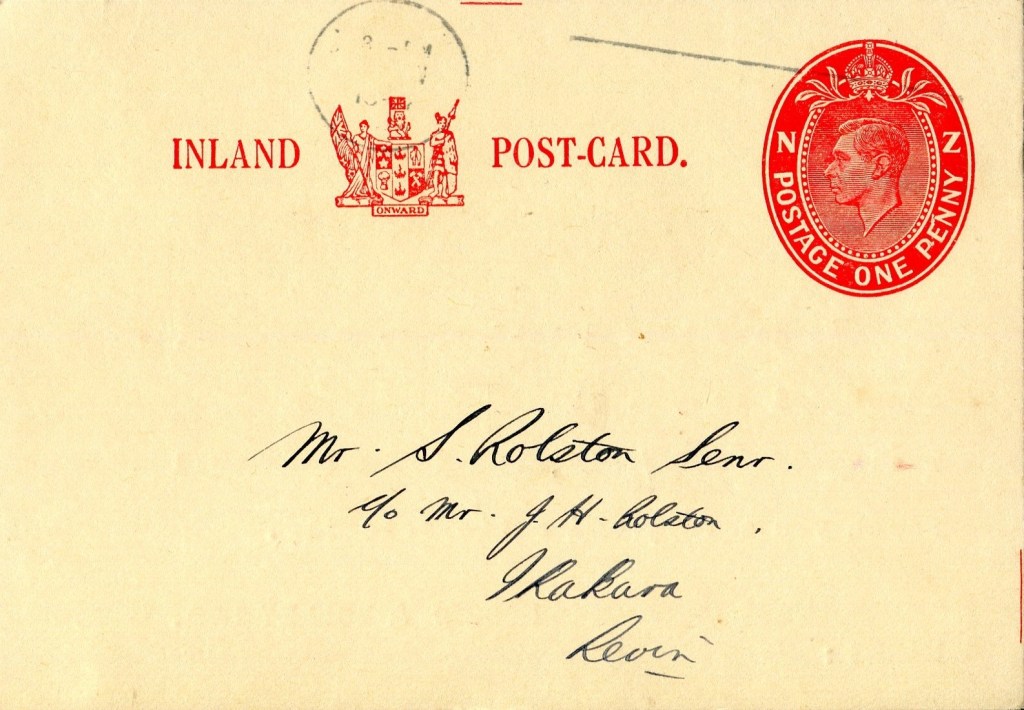 INLAND POST-CARD.
ONWARD
N Z
POSTAGE ONE PENNY
Mr. S. Rolston Senr.
c/o Mr. J. H. Rolston.
Ikakara
Levin